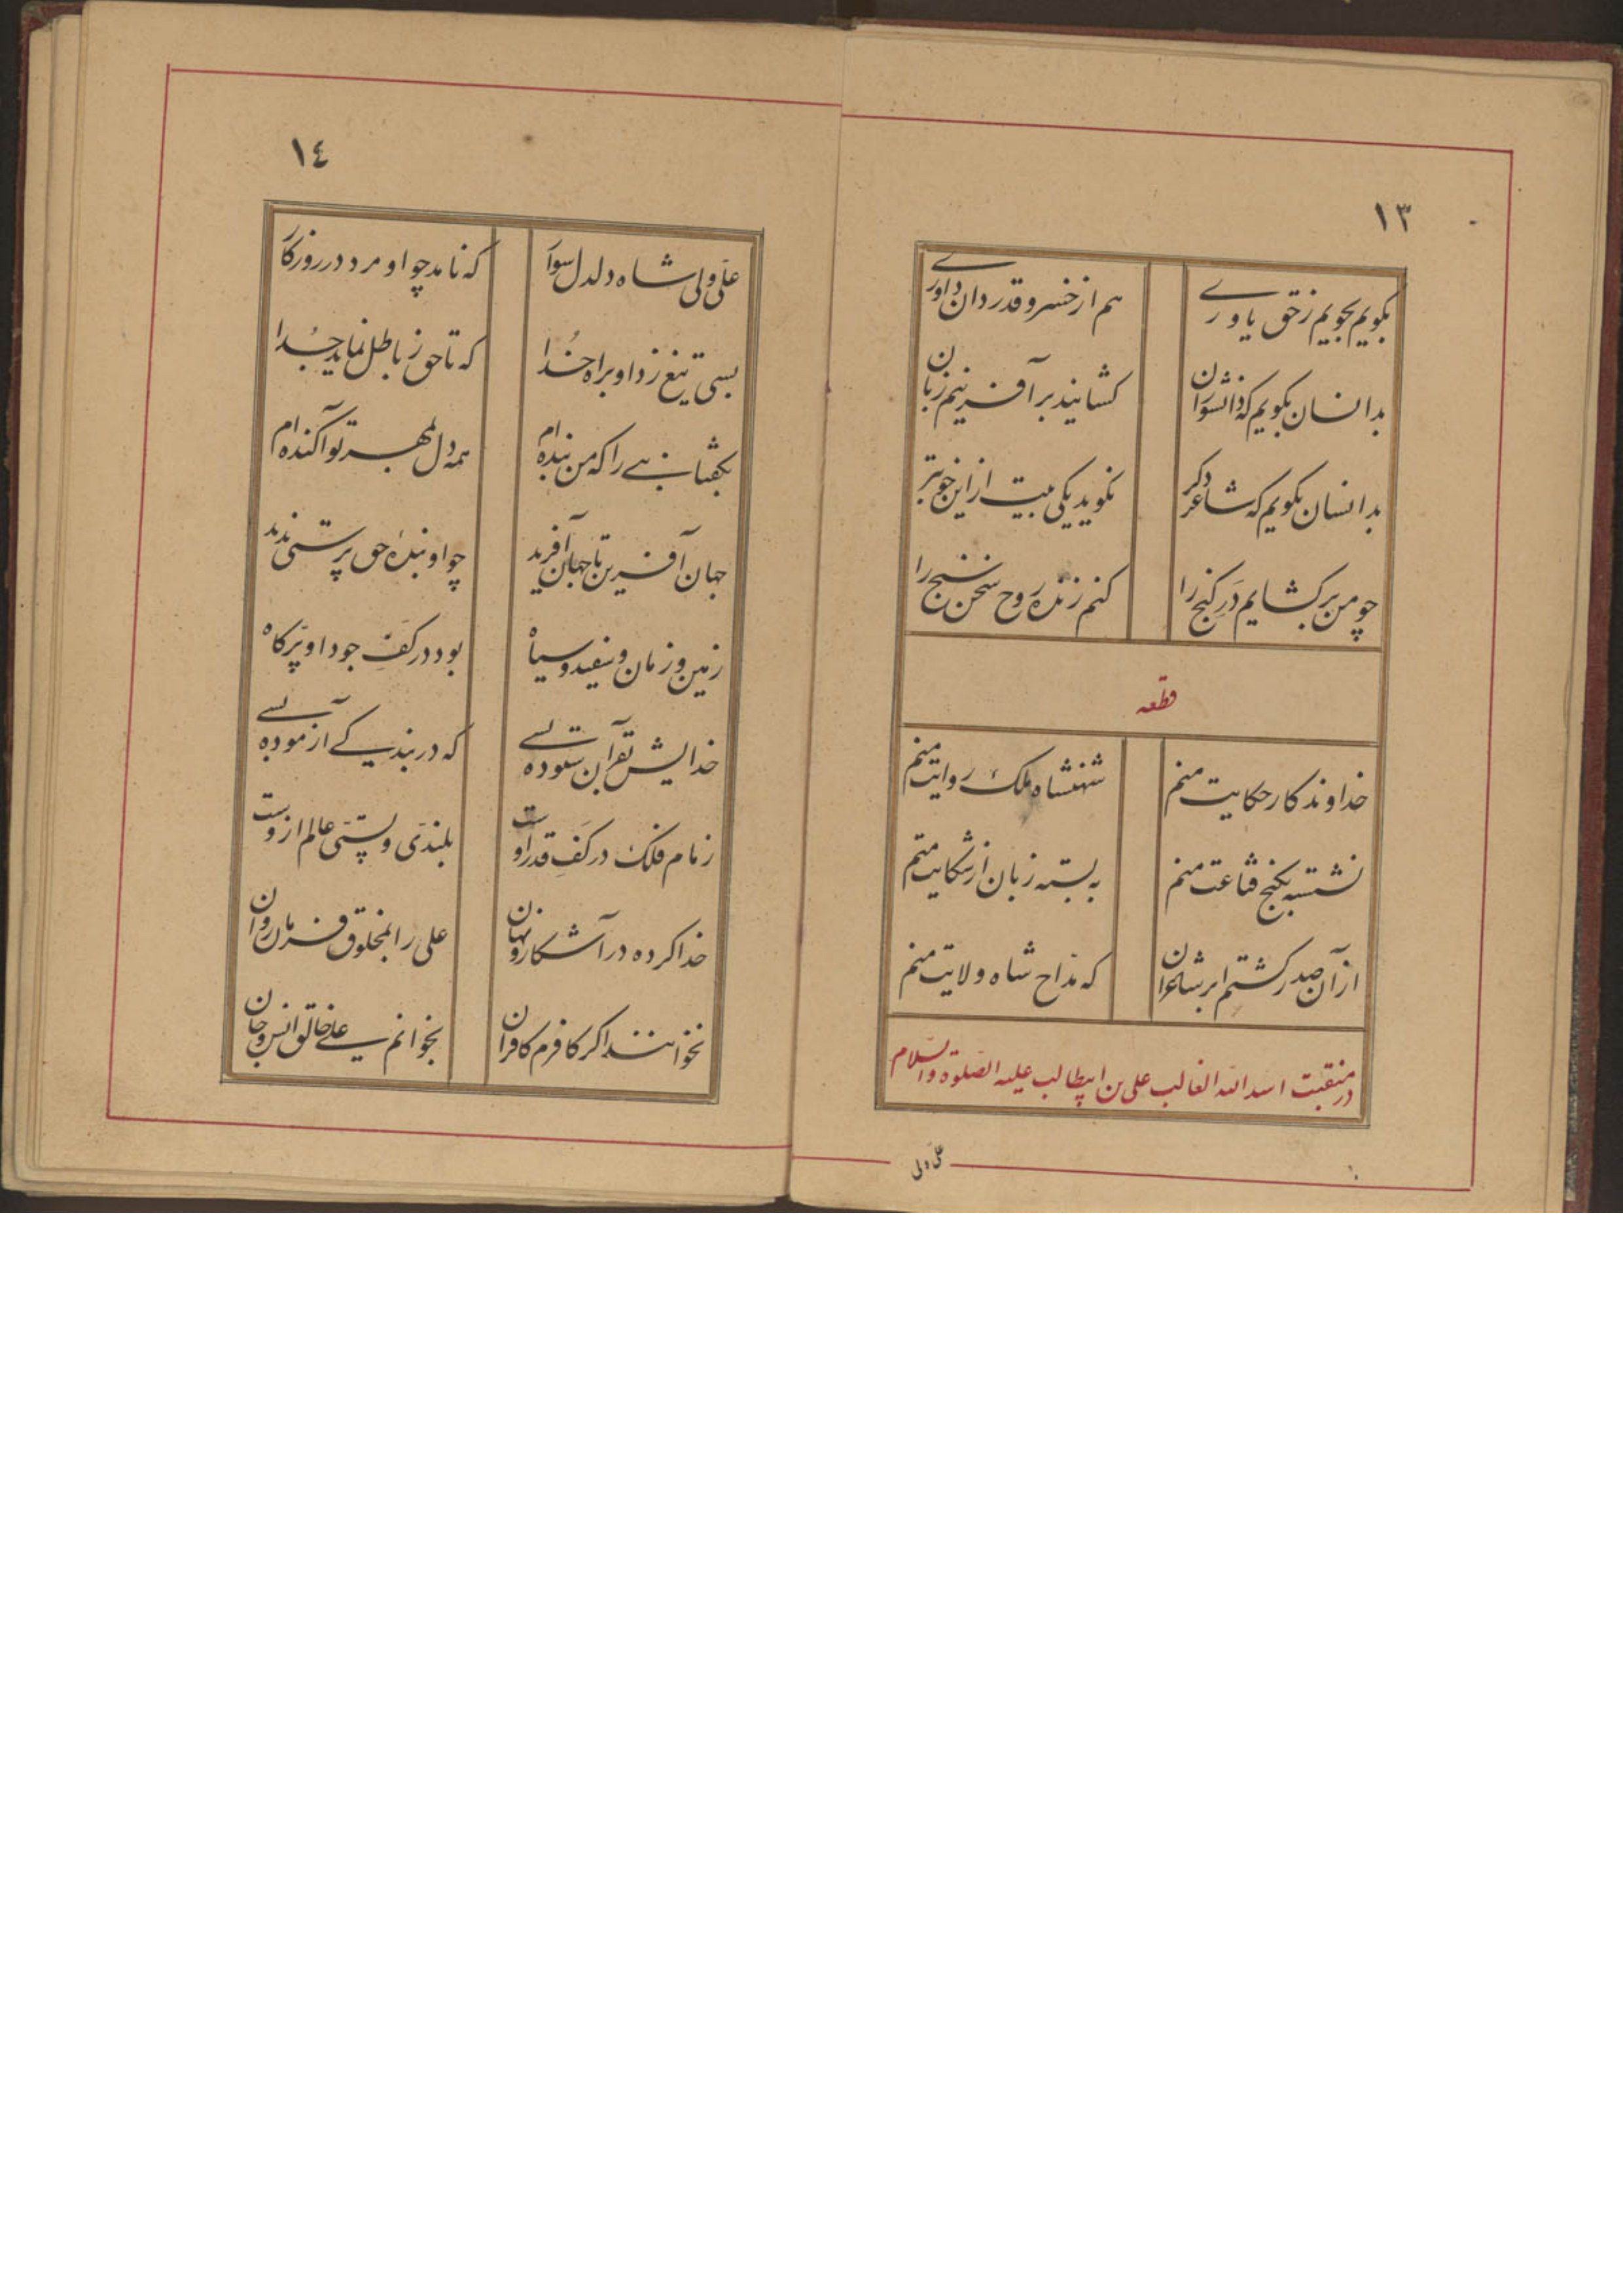 ١٣
بکویم بجویم زحق یاورے هم از خسرو قدردان داورے
بدانسان بکویم که دانشوران کشایند بر آفرینم زبان
بدانسان بکویم که شاعر دکر نکوید یکی بیت از این خوبتر
چو من برکشایم دَرِ کنج را کنم زنده روح سخن سنج را
قطعه
خداوندکار حکایت منم شهنشاه ملک روایت منم
نشسته بکنج قناعت منم به بسته زبان از شکایت منم
از آن صدر کشتم ابر شاعران که مداح شاه ولایت منم
در منقبت اسد الله الغالب علی بن ابیطالب علیه الصّلوة والسّلام
علّی ولی
١٤
علّی ولی شاه دلدل سوار که نامد چو او مرد در روزکار
بسی تیغ زد او براه خُدا که تا حق ز باطل نماید جُدا
بکفتا نبے را که من بنده‌ام همه دل بمهر تو آکنده‌ام
جهان آفرین تا جهان آفرید چو او بندهٔ حق پرستی ندید
زمین و زمان و سفید و سیاه بود در کَفِ جود او پَرّ کاه
خدایش بقرآن ستوده بسے که در بندیکے آزموده بسے
زمام فلک در کَفِ قدر اوست بلندی و پستیّ عالم ازوست
خدا کرده در آشکار و نهان علی را بمخلوق فرمان روان
نخوانند اکر کافرم کافران بخوانم علیے خالق انس و جان